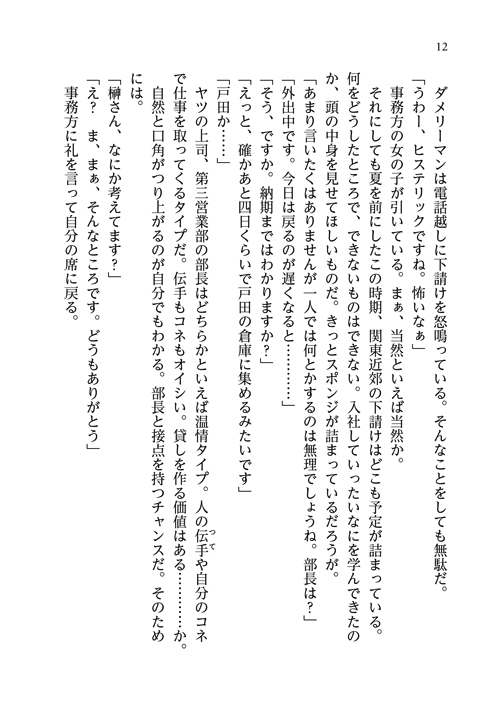 12
ダメリーマンは電話越しに下請けを怒鳴っている。そんなことをしても無駄だ。
「うわー、ヒステリックですね。怖いなぁ」
事務方の女の子が引いている。まぁ、当然といえば当然か。
それにしても夏を前にしたこの時期、関東近郊の下請けはどこも予定が詰まっている。
何をどうしたところで、できないものはできない。入社していったいなにを学んできたの
か、頭の中身を見せてほしいものだ。きっとスポンジが詰まっているだろうが。
「あまり言いたくはありませんが一人では何とかするのは無理でしょうね。部長は？」
「外出中です。今日は戻るのが遅くなると…………」
「そう、ですか。納期まではわかりますか？」
「えっと、確かあと四日くらいで戸田の倉庫に集めるみたいです」
「戸田か……」
ヤツの上司、第三営業部の部長はどちらかといえば温情タイプ。人の伝手や自分のコネ
つて
で仕事を取ってくるタイプだ。伝手もコネもオイシい。貸しを作る価値はある…………か。
自然と口角がつり上がるのが自分でもわかる。部長と接点を持つチャンスだ。そのため
には。
「榊さん、なにか考えてます？」
「え？　ま、まぁ、そんなところです。どうもありがとう」
事務方に礼を言って自分の席に戻る。